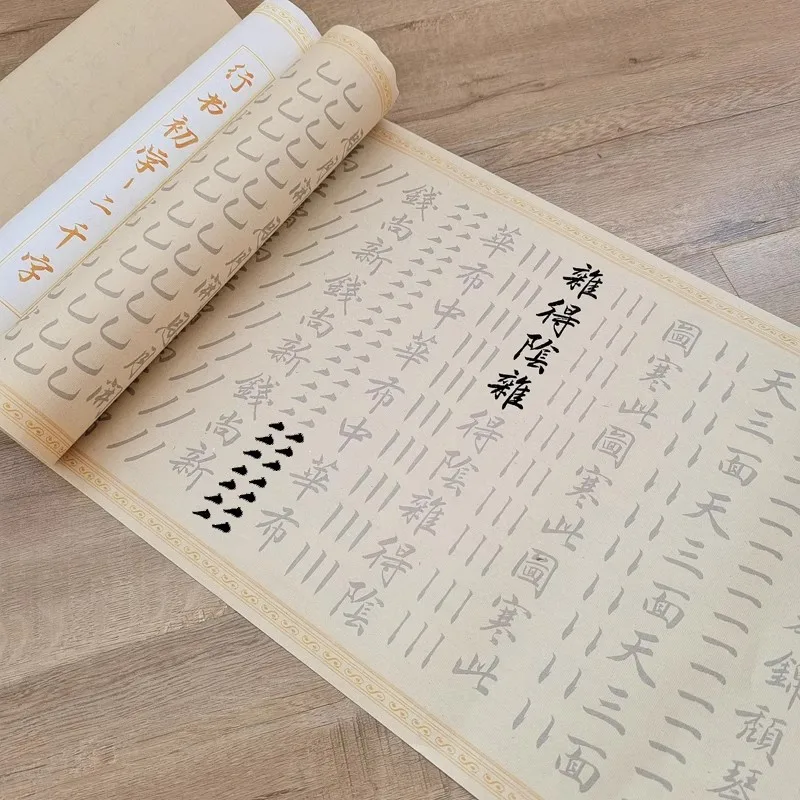 行书初学一二千字
錦頹琴
天三面天三面天三面
圖寒此圖寒此圖寒此
雜得陰雜得陰雜得陰
華布中華布中華布
錢尚新錢尚新錢尚新